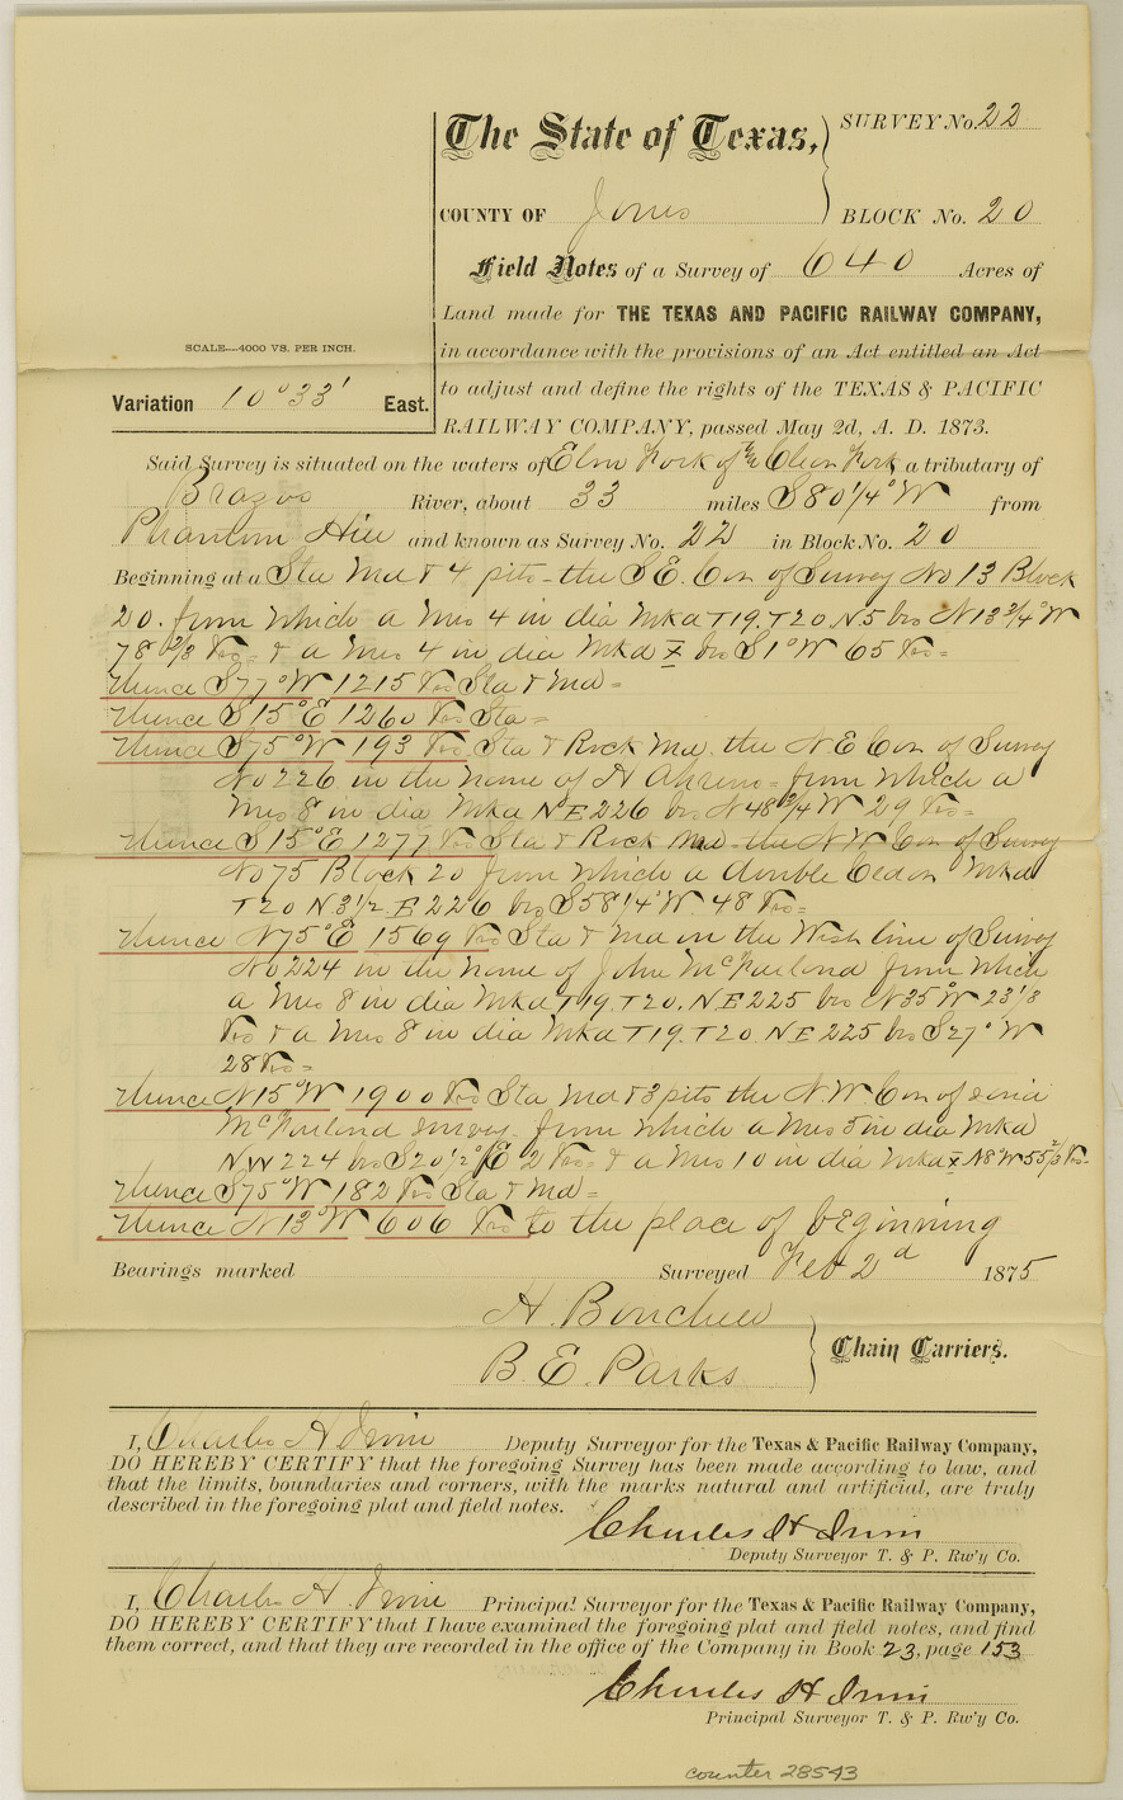 The State of Texas,
SURVEY No. 22
COUNTY OF Jones
BLOCK No. 20
Field Notes of a Survey of 640 Acres of
Land made for THE TEXAS AND PACIFIC RAILWAY COMPANY,
SCALE—4000 VS. PER INCH.
in accordance with the provisions of an Act entitled an Act
to adjust and define the rights of the TEXAS & PACIFIC
Variation 10°33' East.
RAILWAY COMPANY, passed May 2d, A. D. 1873.
Said Survey is situated on the waters of Elm Fork of the Clear Fork, a tributary of
Brazos River, about 33 miles S80 1/4° W from
Phantom Hill and known as Survey No. 22 in Block No. 20
Beginning at a Sta Md & 4 pits - the S.E. Cor of Survey No 13 Block
20. from which a Mes 4 in dia Mkd T19. T20. N.5 brs N13 3/4° W
78 2/3 Vrs = & a Mes 4 in dia Mkd X brs S1° W 65 Vrs =
Thence S77° W 1215 Vrs Sta & Md =
Thence S15° E 1260 Vrs Sta =
Thence S75° W 193 Vrs Sta & Rock Md. the N.E Cor of Survey
No 226 in the name of H Ahrens = from which a
Mes 8 in dia Mkd NE 226 brs N48 3/4 W 29 Vrs =
Thence S15° E 1277 Vrs Sta & Rock Md - the N.W Cor of Survey
No 75 Block 20 from which a double Cedar Mkd
T20 N3 1/2. E 226 brs S58 1/4° W. 48 Vrs =
Thence N75° E 1569 Vrs Sta & Md on the West line of Survey
No 224 in the name of John McFarland from which
a Mes 8 in dia Mkd T19. T20. N.E 225 brs N35° W 23 1/3
Vrs & a Mes 8 in dia Mkd T19. T20. NE 225 brs S27° W
28 Vrs =
Thence N15° W 1900 Vrs Sta Md & 3 pits the N.W. Cor of said
McFarland survey. from which a Mes 5 in dia Mkd
NW 224 brs S20 1/2° E 2 Vrs = & a Mes 10 in dia Mkd X N8° W 55 2/3 Vrs -
Thence S75° W 182 Vrs Sta & Md =
Thence N13° W 606 Vrs to the place of beginning
Bearings marked Surveyed Feb 2d 1875
H. Bouchell
B. E. Parks
Chain Carriers.
I, Charles H Irvin Deputy Surveyor for the Texas & Pacific Railway Company,
DO HEREBY CERTIFY that the foregoing Survey has been made according to law, and
that the limits, boundaries and corners, with the marks natural and artificial, are truly
described in the foregoing plat and field notes.
Charles H Irvin
Deputy Surveyor T. & P. Rw'y Co.
I, Charles H. Irvin Principal Surveyor for the Texas & Pacific Railway Company,
DO HEREBY CERTIFY that I have examined the foregoing plat and field notes, and find
them correct, and that they are recorded in the office of the Company in Book 23, page 153
Charles H Irvin
Principal Surveyor T. & P. Rw'y Co.
counter 28543